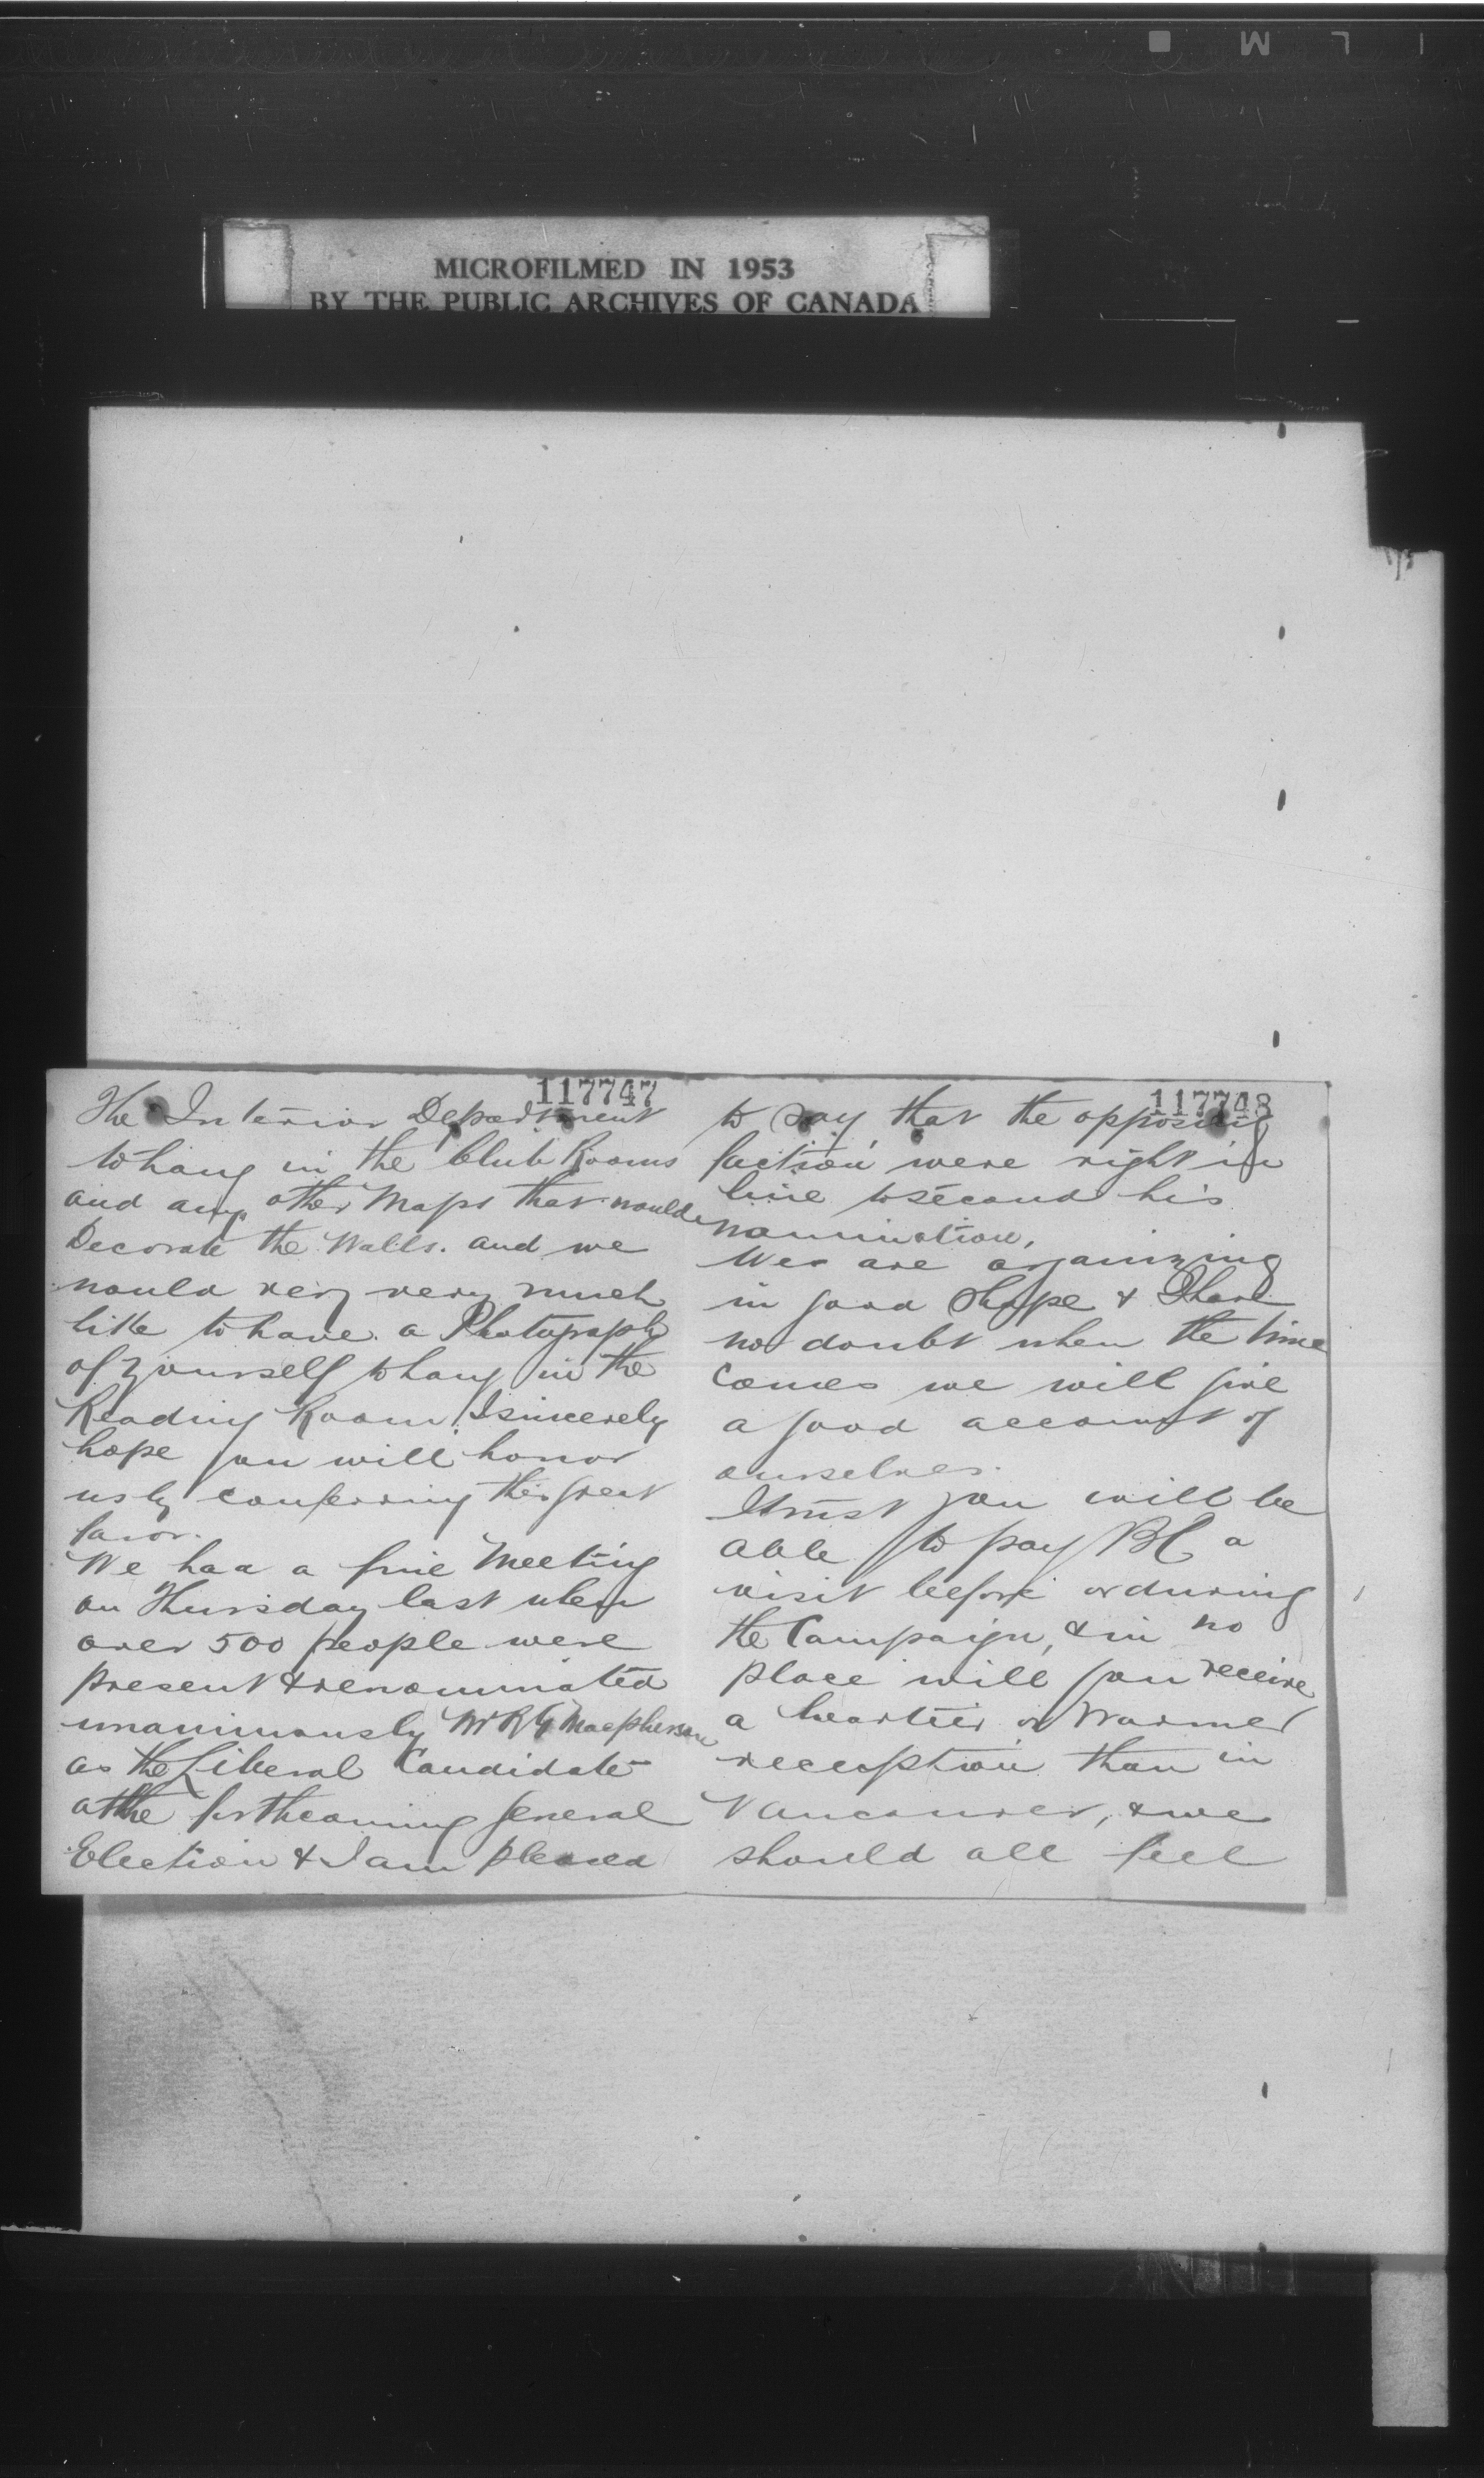 MICROFILMED IN 1953
BY THE PUBLIC ARCHIVES OF CANADA
117747
The Interior Department
to hang in the Club Rooms
and any other Maps that would
Decorate the Walls. and we
would very very much
like to have a Photograph
of yourself to hang in the
Reading Room. I sincerely
hope you will honor
us by conferring this great
favor.
We had a fine Meeting
on Thursday last when
over 500 people were
present & renominated
unanimously Mr R G Macpherson
as the Liberal Candidate
at the forthcoming general
Election & I am pleased
117748
to say that the opposing
faction were right in
line to second his
nomination.
We are organizing
in good shape & I have
no doubt when the time
comes we will give
a good account of
ourselves.
I trust you will be
able to pay BC a
visit before or during
the Campaign, & in no
place will you receive
a heartier or Warmer
reception than in
Vancouver, & we
should all feel